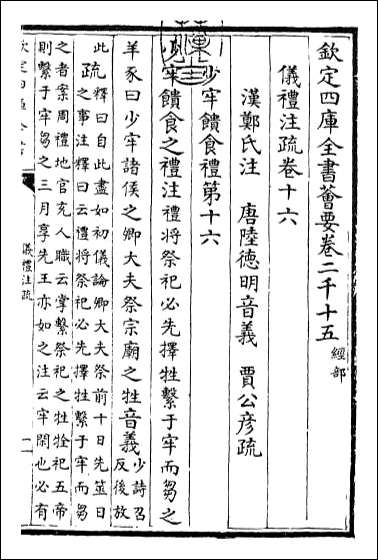 欽定四庫全書薈要卷二千十五 經部
儀禮注疏卷十六
漢鄭氏注 唐陸德明音義 賈公彥疏
少牢饋食禮第十六
少牢饋食之禮注禮將祭祀必先擇牲繫于牢而芻之
羊豕曰少牢諸侯之卿大夫祭宗廟之牲音義少詩召
反後放
此疏釋曰自此盡如初儀論卿大夫祭前十日先筮日
之事注釋曰云禮將祭祀必先擇牲繫于牢而芻
之者案周禮地官充人職云掌繫祭祀之牲牷祀五帝
則繫于牢芻之三月享先王亦如之注云牢閑也必有
儀禮注疏
一